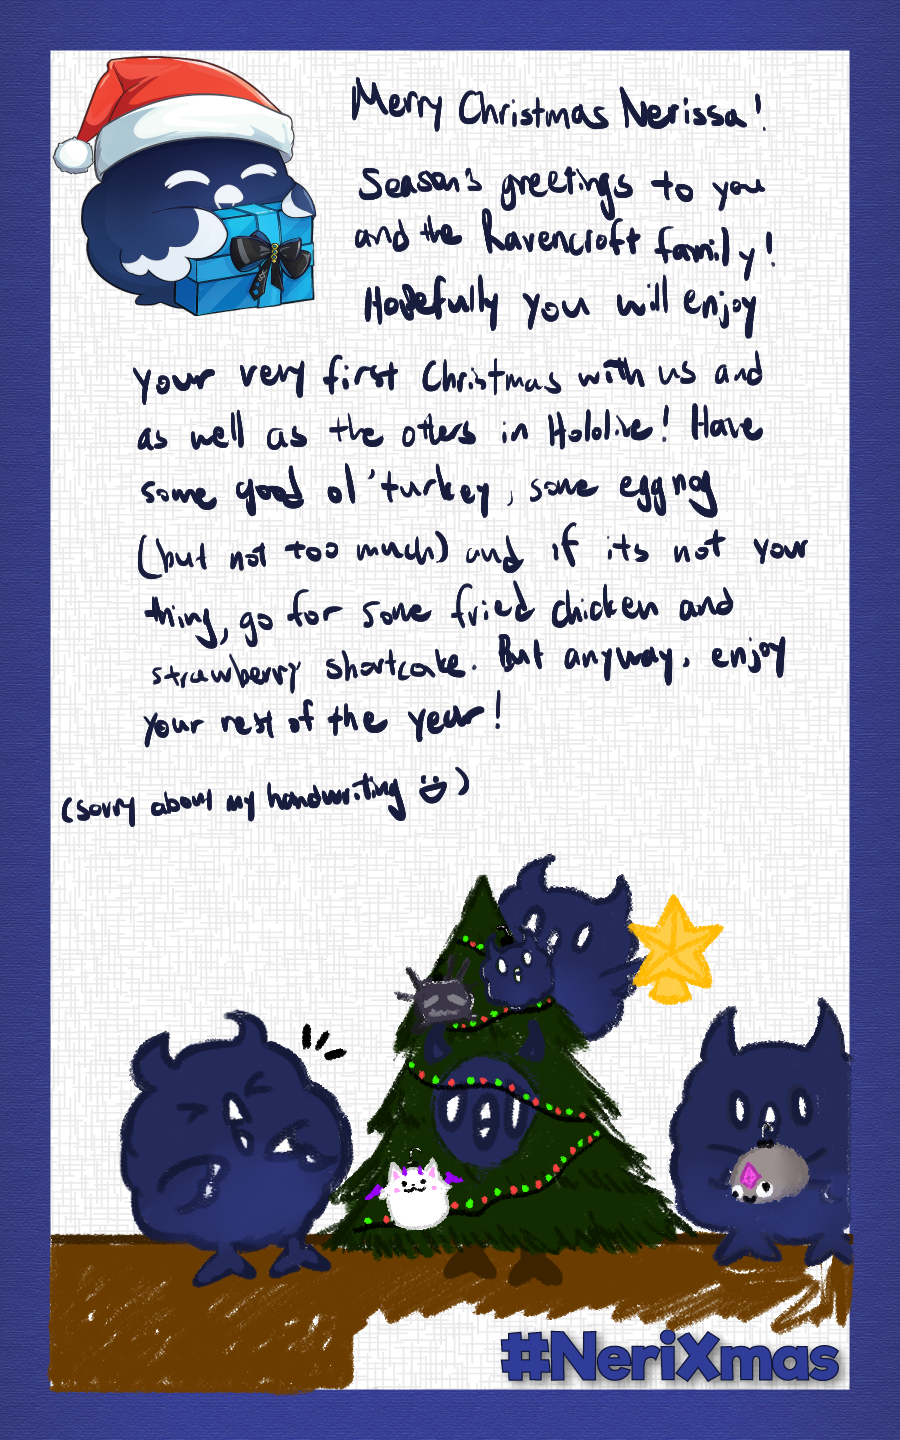 Merry Christmas Nerissa!
Season's greetings to you
and the Ravencroft family!
Hopefully you will enjoy
your very first Christmas with us and
as well as the others in Hololive! Have
some good ol' turkey, some egg nog
(but not too much) and if its not your
thing, go for some fried chicken and
strawberry shortcake. But anyway, enjoy
your rest of the year!
(sorry about my handwriting 😃)
#NeriXmas